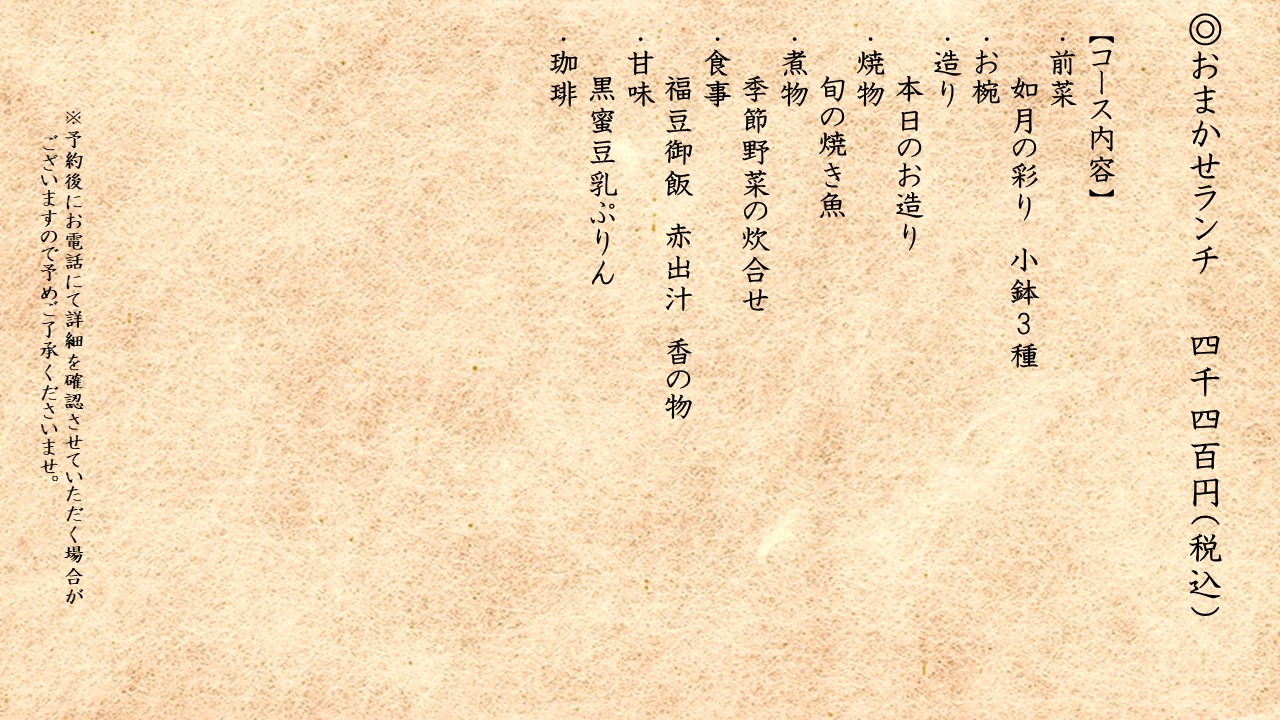 ◎おまかせランチ　四千四百円（税込）
【コース内容】
・前菜
如月の彩り　小鉢３種
・お椀
・造り
本日のお造り
・焼物
旬の焼き魚
・煮物
季節野菜の炊合せ
・食事
福豆御飯　赤出汁　香の物
・甘味
黒蜜豆乳ぷりん
・珈琲
※予約後にお電話にて詳細を確認させていただく場合が
ございますので予めご了承くださいませ。